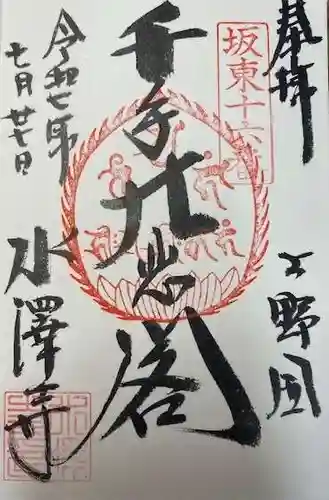 奉拝
上野国
坂東十六番
千手大悲閣
令和七年
七月廿七日
水澤寺